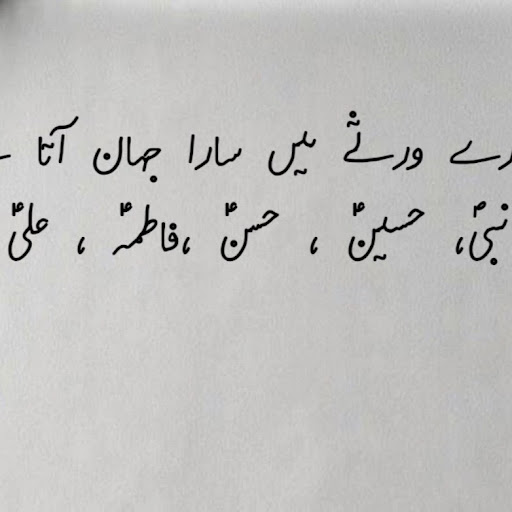 ورثے میں سارا جہان آتا
نبیؐ، حسینؑ ، حسنؑ ،فاطمہؑ ، علیؑ